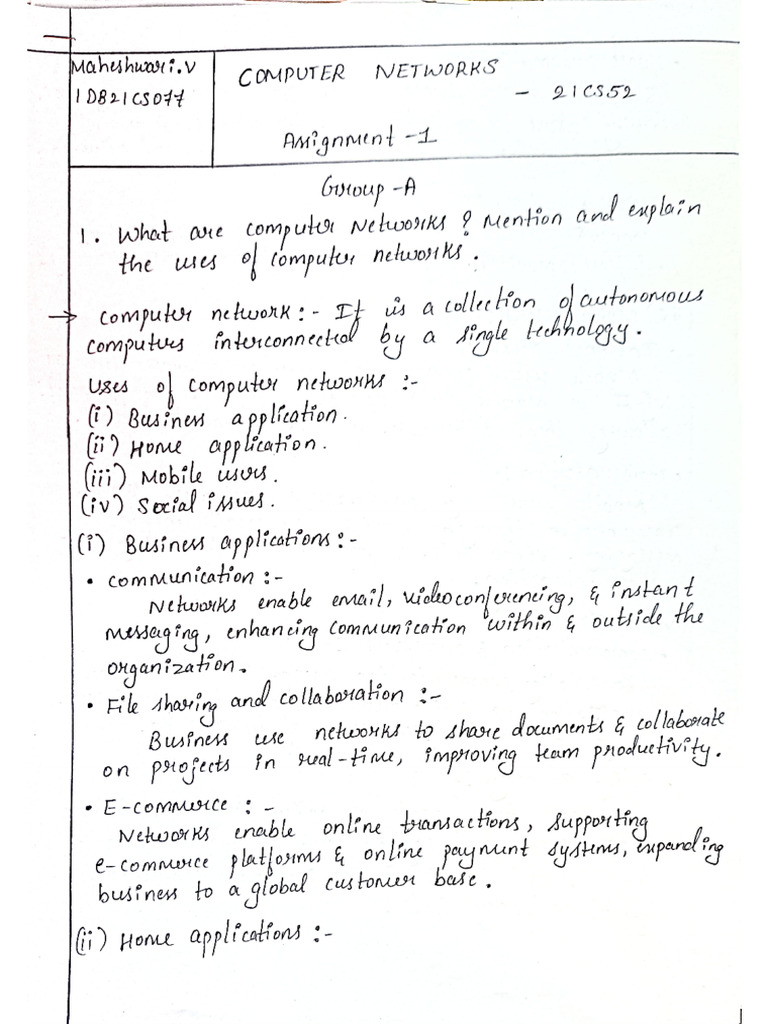 Maheshwari.V
1DB21CS077
COMPUTER NETWORKS
- 21CS52
Assignment -1
Group -A
1. What are computer Networks? Mention and explain
the uses of computer networks.
→ Computer network:- It is a collection of autonomous
computers interconnected by a single technology.
Uses of computer networks :-
(i) Business application.
(ii) Home application.
(iii) Mobile users.
(iv) Social issues.
(i) Business applications:-
• Communication :-
Networks enable email, videoconferencing, & instant
messaging, enhancing communication within & outside the
organization.
• File sharing and collaboration :-
Business use networks to share documents & collaborate
on projects in real-time, improving team productivity.
• E-commerce :-
Networks enable online transactions, supporting
e-commerce platforms & online payment systems, expanding
business to a global customer base.
(ii) Home applications :-